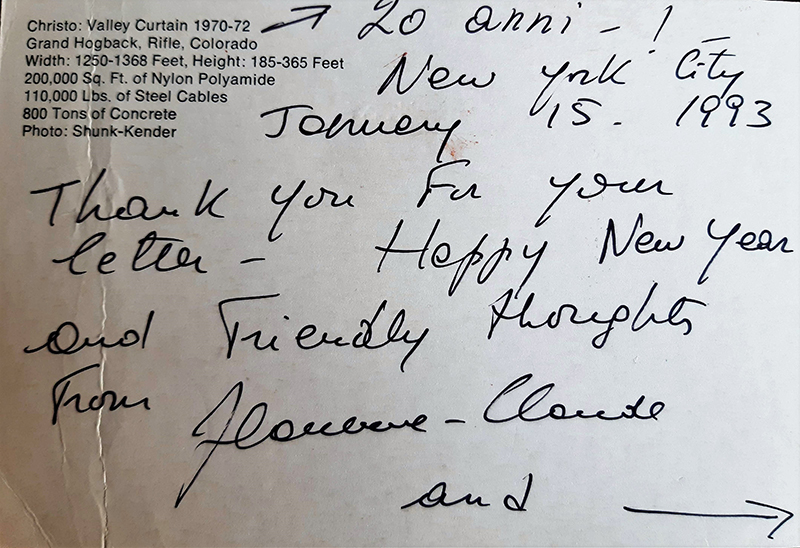 Christo: Valley Curtain 1970-72
Grand Hogback, Rifle, Colorado
Width: 1250-1368 Feet, Height: 185-365 Feet
200,000 Sq. Ft. of Nylon Polyamide
110,000 Lbs. of Steel Cables
800 Tons of Concrete
Photo: Shunk-Kender
→ 20 anni - !
New York City
January 15. 1993
Thank you For your
letter - Happy New Year
and Friendly thoughts
From
-Claude
and →